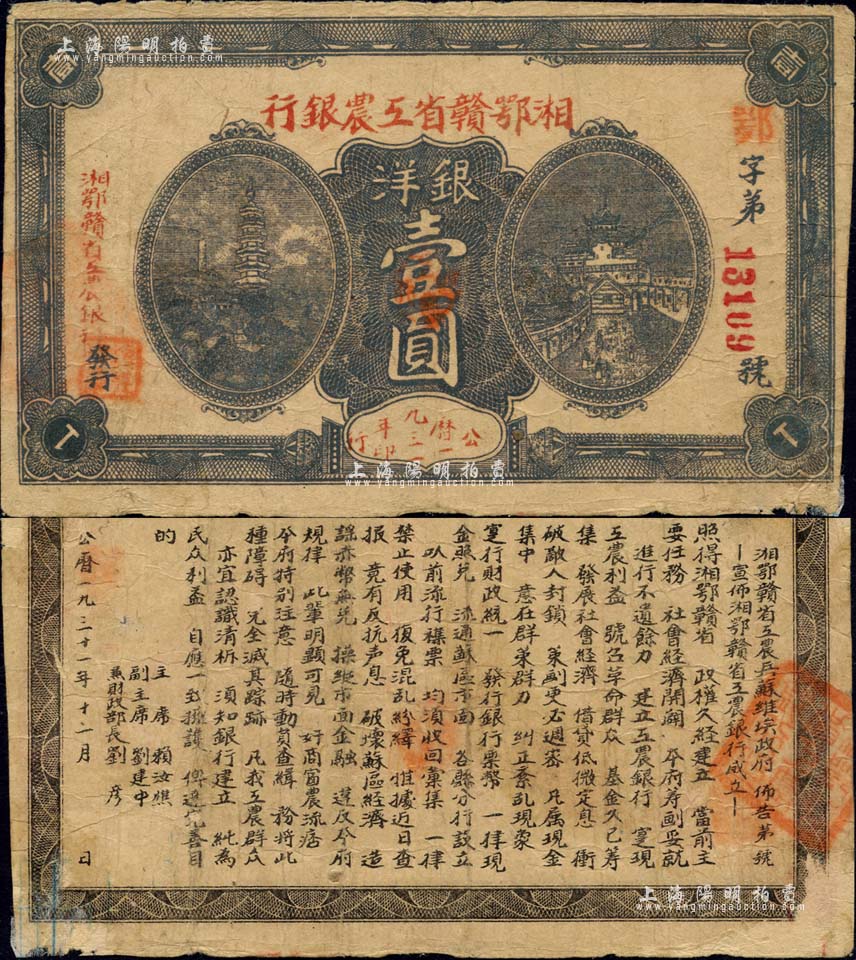 上海陽明拍賣
www.yangmingauction.com
湘鄂贛省工農銀行
銀洋
壹圓
鄂
字第
13109
號
湘鄂贛省工農銀行
發行
公曆一九三一年印行
上海陽明拍賣
www.yangmingauction.com
湘鄂贛省工農兵蘇維埃政府 佈告第 號
—宣佈湘鄂贛省工農銀行成立—
照得湘鄂贛省 政權久經建立 當前主
要任務 社會經濟開闢 本府籌劃妥就
進行不遺餘力 建立工農銀行 實現
工農利益 號召革命群众 基金久已籌
集 發展社會經濟 借貸低微定息 衝
破敵人封鎖 策劃更必週密 凡屬現金
集中 意在群策群力 糾正紊乱現象
實行財政統一 發行銀行票幣 一律現
金照兑 流通蘇區市面 各縣分行設立
以前流行襍票 均須收回彙集 一律
禁止使用 復免混乱紛繹 惟據近日查
报 竟有反抗声息 破壞蘇區經濟 造
謠赤幣無兑 操縱市面金融 違反本府
規律 此輩明顯可見 奸商富農流痞
本府特别注意 隨時動員查緝 務將此
種障碍 完全滅其踪跡 凡我工農群众
亦宜認識清楚 須知銀行建立 純為
民众利益 自應一致擁護 俾達完善目
的
主席 賴汝樵
副主席 劉建中
兼財政部長劉彦
公曆一九三十一年十一月 日
上海陽明拍賣
www.yangmingauction.com